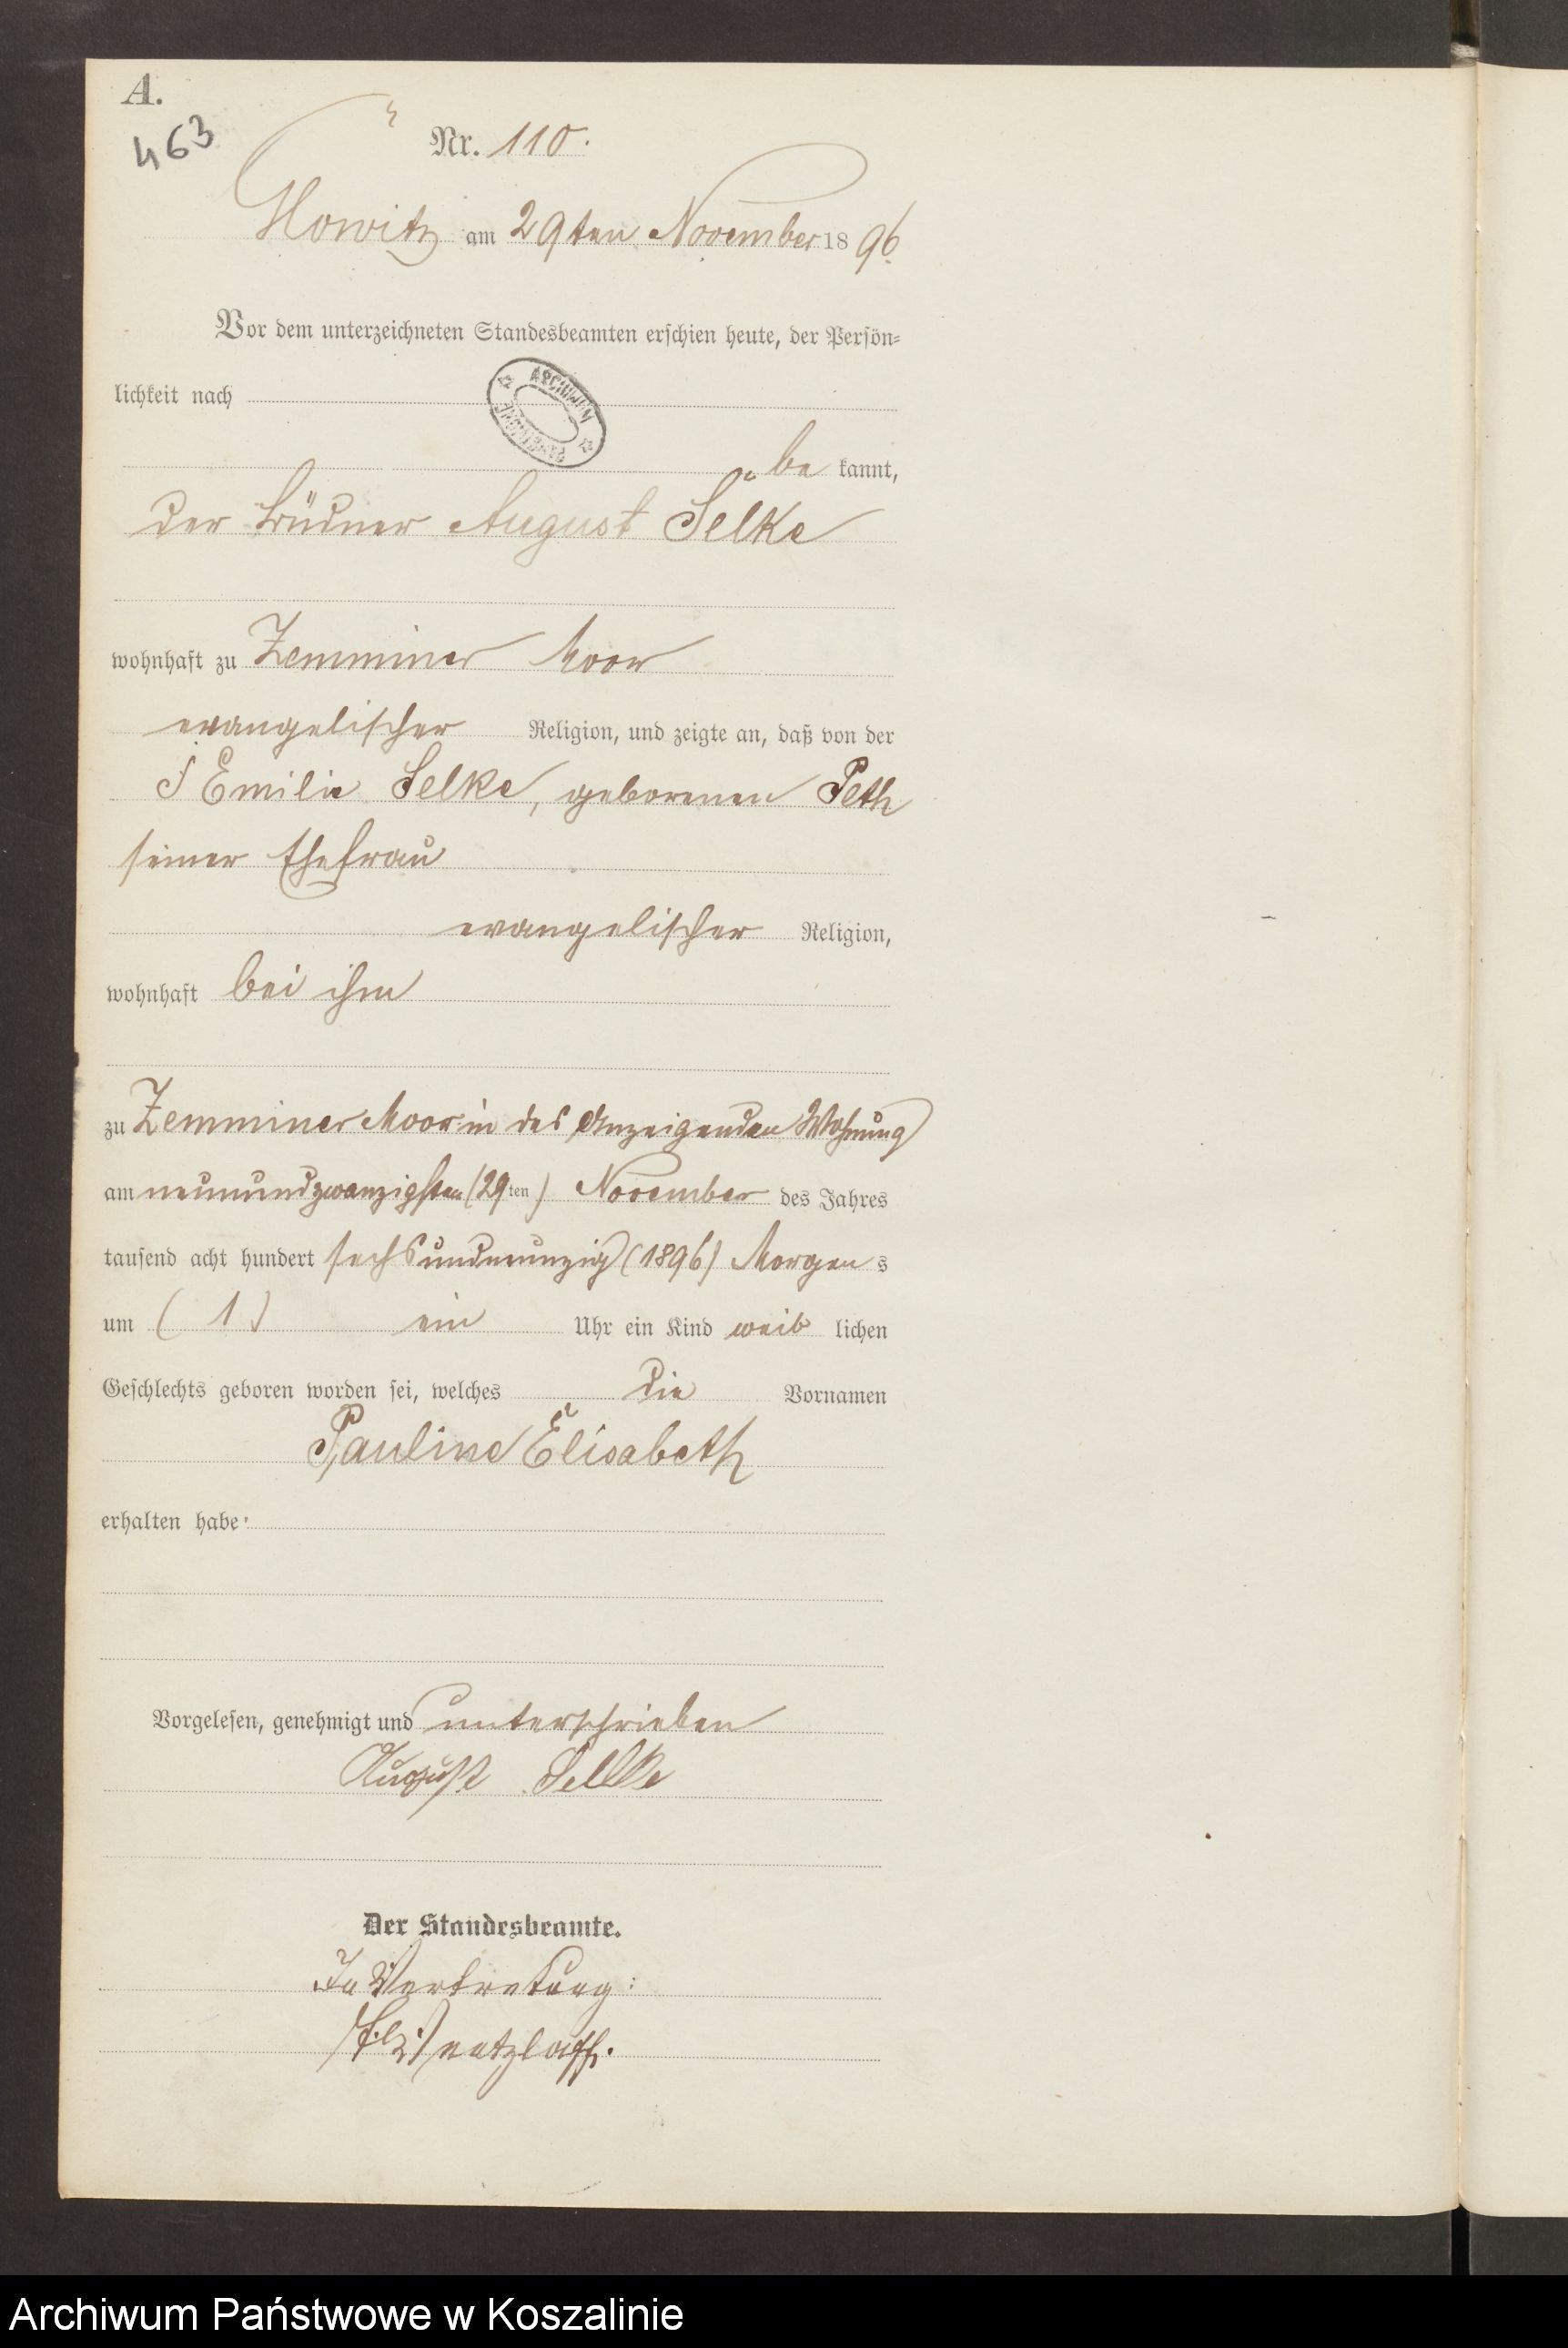 A.
463
Nr. 110.
Flowitz am 29ten November 1896.
Vor dem unterzeichneten Standesbeamten erschien heute, der Persön-
lichkeit nach
ARCHIWUM
be kannt,
der Büdner August Selke
wohnhaft zu Zemminer Moor
evangelischer Religion, und zeigte an, daß von der
Emilie Selke, geborenen Peth
seiner Ehefrau
evangelischer Religion,
wohnhaft bei ihm
zu Zemminer Moor in des Anzeigenden Wohnung
am neunundzwanzigsten (29ten) November des Jahres
tausend acht hundert sechsundneunzig (1896) Morgens
um (1) ein Uhr ein Kind weiblichen
Geschlechts geboren worden sei, welches die Vornamen
Pauline Elisabeth
erhalten habe.
Vorgelesen, genehmigt und unterschrieben
August Selke
Der Standesbeamte.
In Vertretung:
Wetzlaff.
Archiwum Państwowe w Koszalinie